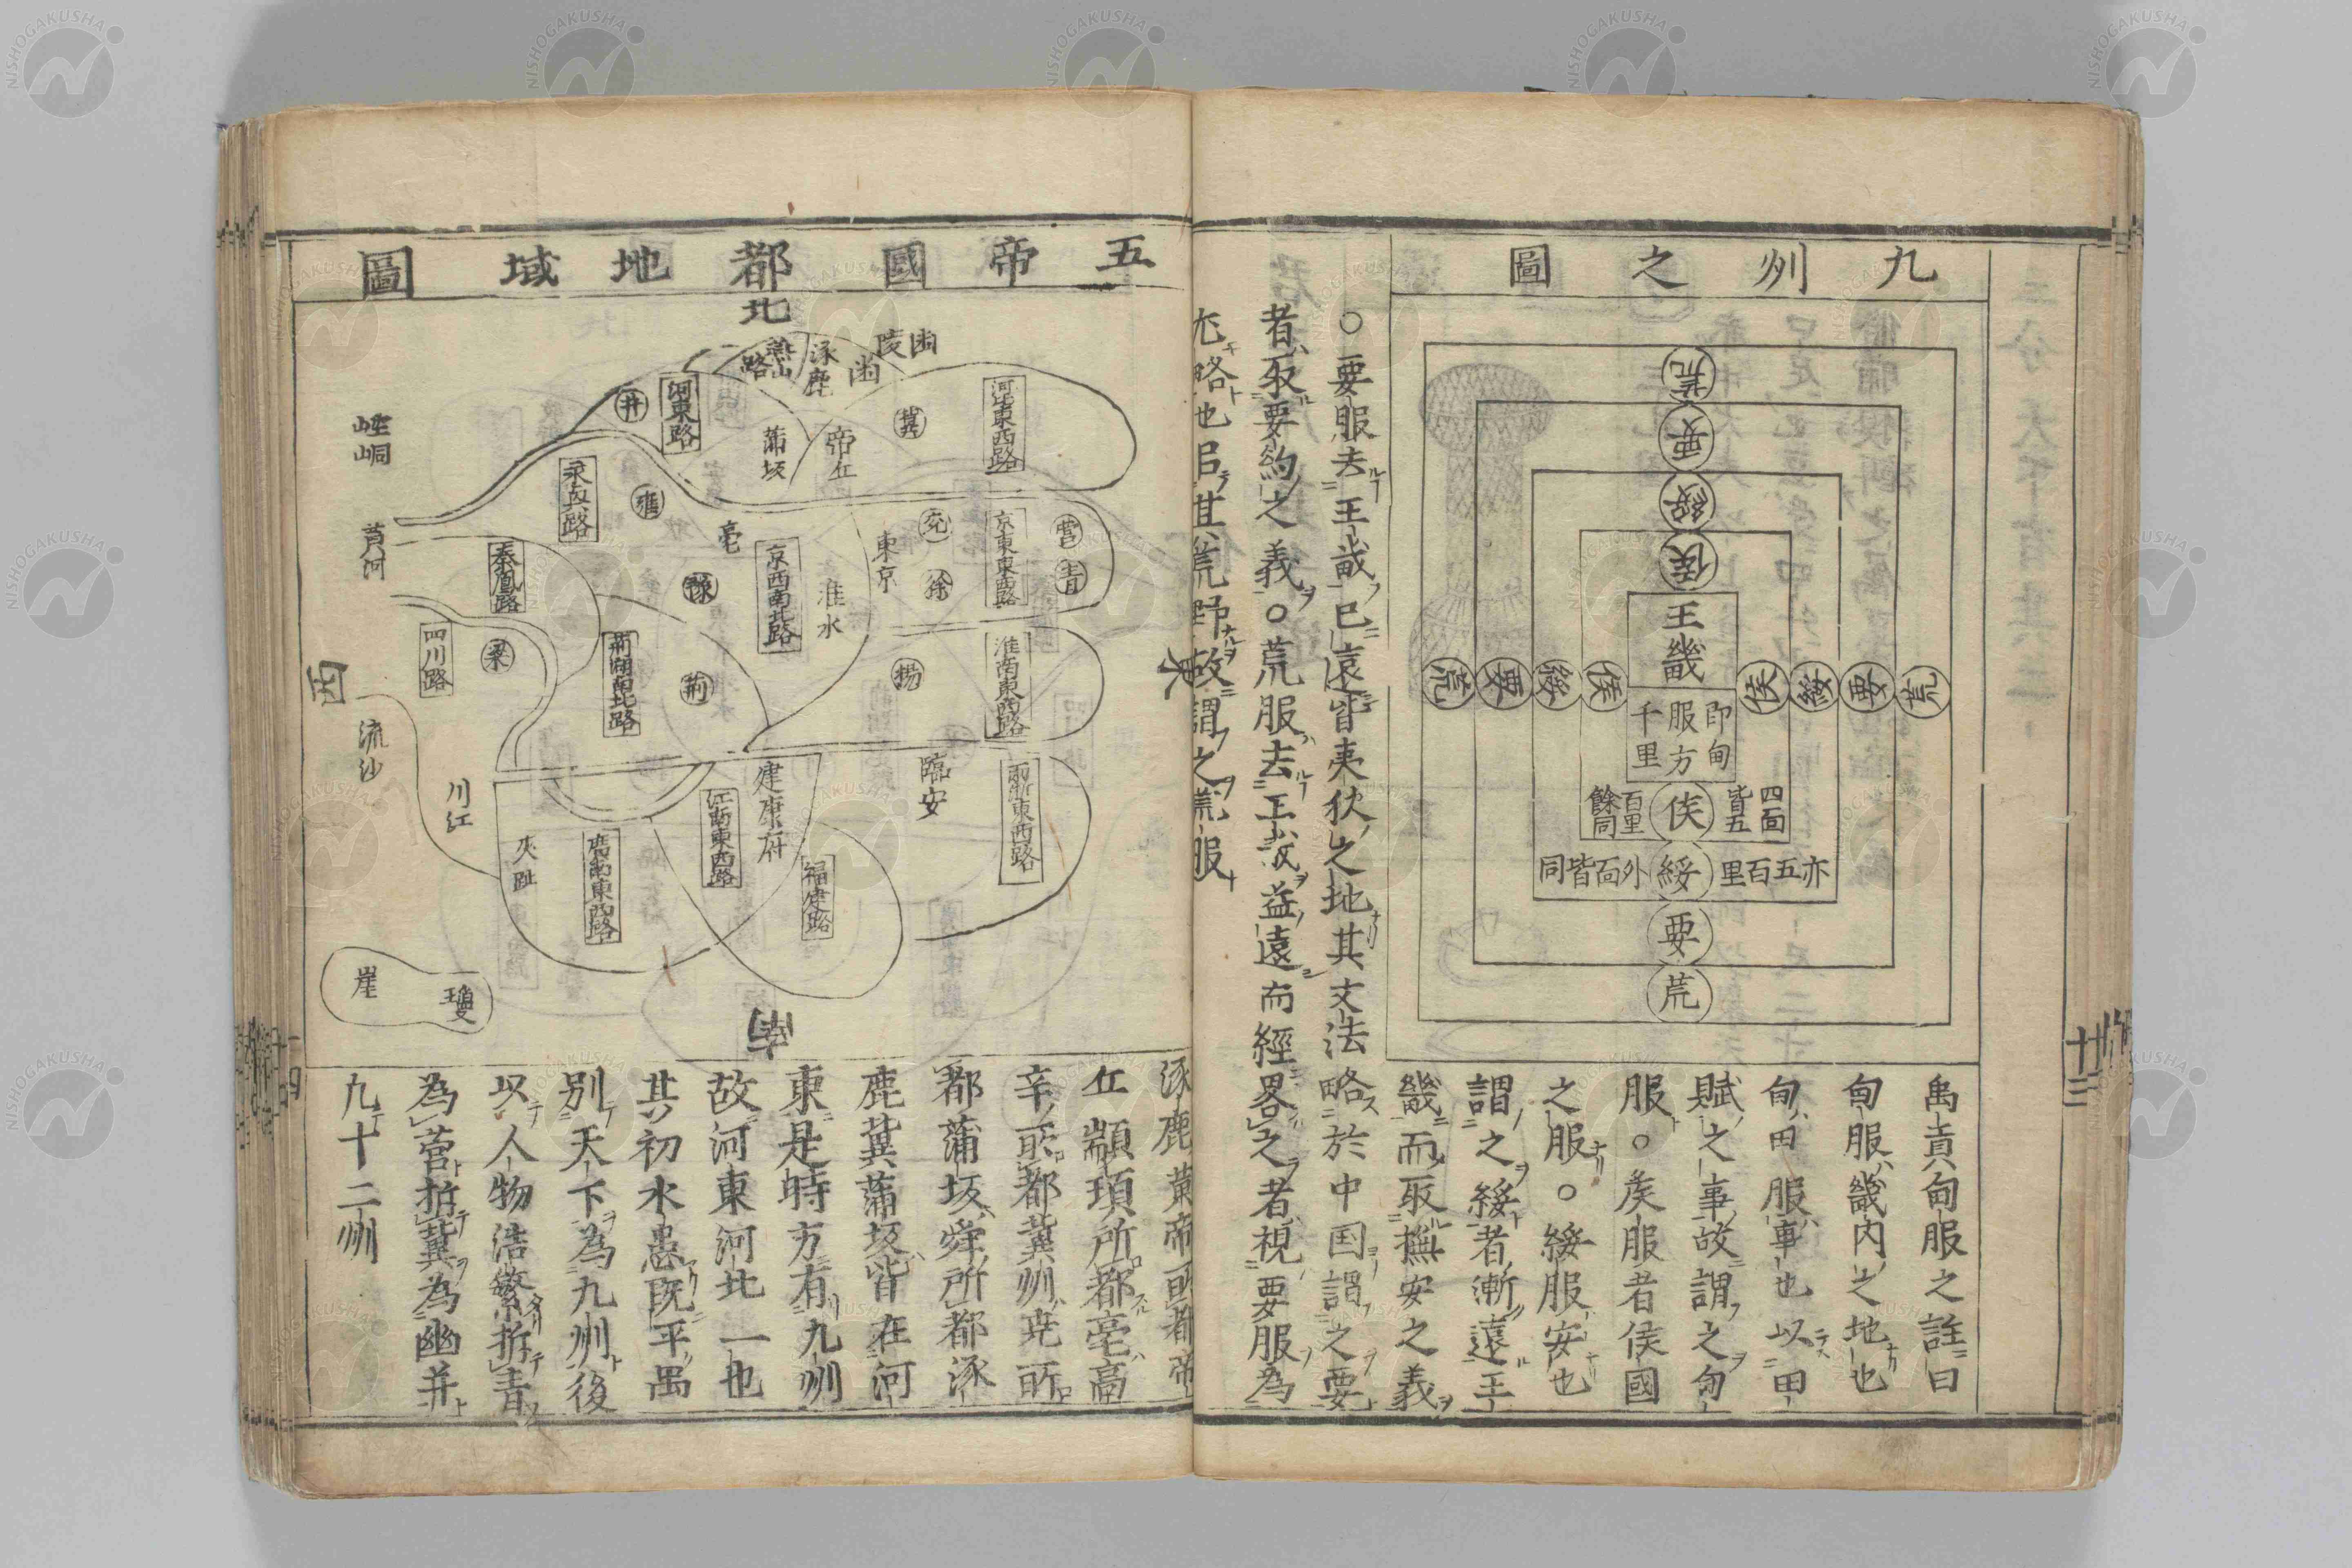 九州之圖
荒
要
綏
侯
王畿
即甸
服方
千里
荒
要
綏
侯
侯
綏
要
荒
四面
皆五
侯
百里
餘同
亦五百里
綏
外面皆同
要
荒
禹貢甸服之註曰
甸服畿内之地也
甸田服事也以田
賦之事故謂之甸
服○矦服者侯國
之服○綏服安也
謂之綏者漸遠王
畿而取撫安之義
○要服去王畿已遠皆夷狄之地其文法略於中国謂之要
者取要約之義○荒服去王畿益遠而經畧之者視要服為
尤略也以其荒野故謂之荒服
十三
五帝國都地域圖
北
涿鹿
幽
燕山路
河東路
井
蒲坂
帝丘
冀
河北東西路
崆峒
黄河
永興路
雍
亳
東京
兖
京東東西路
營
青
徐
秦鳳路
豫
京西南北路
淮水
四川路
梁
荆湖南北路
荆
揚
淮南東西路
西
流沙
川江
建康府
江南東西路
臨安
兩浙東西路
交趾
廣南東西路
福建路
崖
瓊
南
涿鹿黄帝所都帝
丘顓頊所都亳高
辛所都冀州尭所
都蒲坂舜所都涿
鹿冀蒲坂皆在河
東是時方有九州
故河東河北一也
其初水患既平禹
别天下為九州後
以人物浩繁拆青
為營拆冀為幽并
九十二州
十四
NISHOGAKUSHA